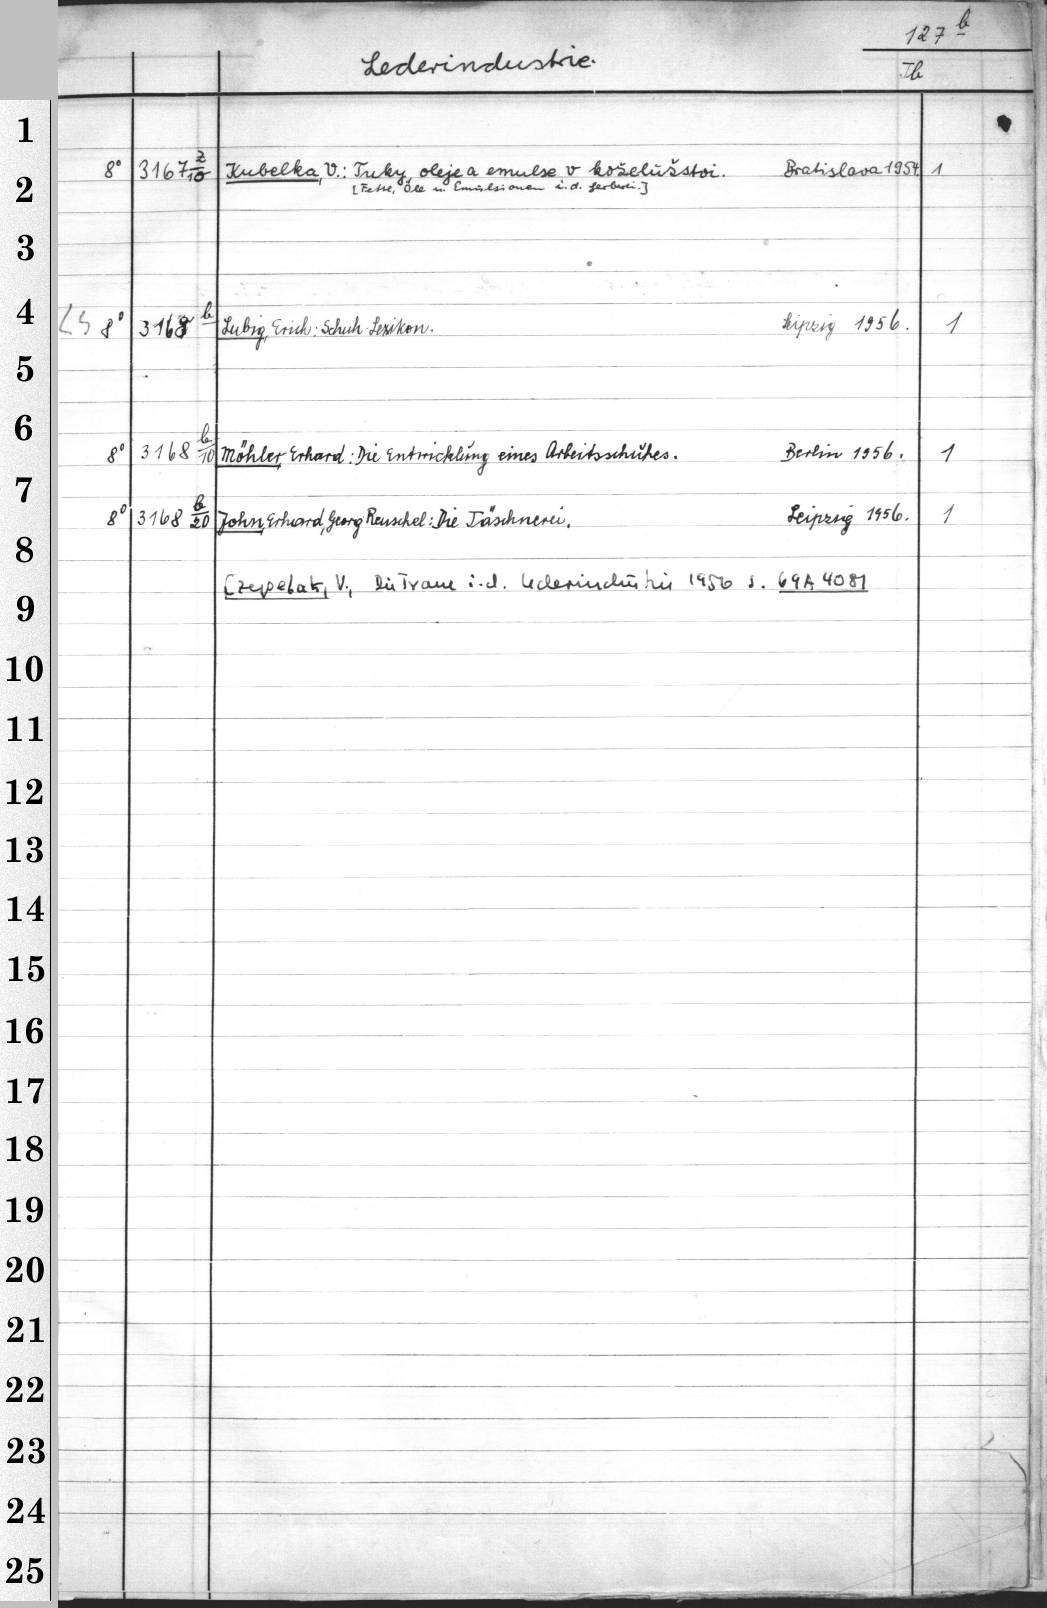 127 b
Lederindustrie.
Ib
1
8° 3167 z/10 Kubelka, V.: Tuky, oleje a emulse v koželužstvi. Bratislava 1954. 1
2
[Fette, Öle u. Emulsionen i. d. Gerberei.]
3
4
LS 8° 3168 b Lubig, Erich: Schuh-Lexikon. Leipzig 1956. 1
5
6
8° 3168 b/10 Möhler, Erhard: Die Entwicklung eines Arbeitsschuhes. Berlin 1956. 1
7
8° 3168 b/20 John, Erhard, Georg Reuschel: Die Täschnerei. Leipzig 1956. 1
8
V., Die i. d. Lederindustrie 1956 s. 69A 4081
9
10
11
12
13
14
15
16
17
18
19
20
21
22
23
24
25